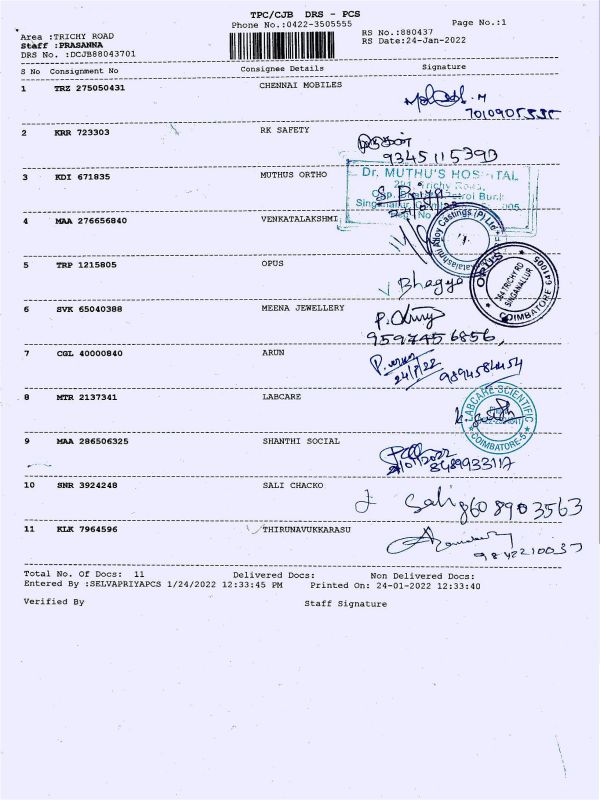 TPC/CJB DRS - PCS
Phone No.:0422-3505555
Page No.:1
Area :TRICHY ROAD
RS No.:880437
Staff :PRASANNA
RS Date:24-Jan-2022
DRS No. :DCJB88043701
S No Consignment No Consignee Details Signature
1 TRZ 275050431 CHENNAI MOBILES
2 KRR 723303 RK SAFETY
9345115393
3 KDI 671835 MUTHUS ORTHO
Dr. MUTHU'S HOSPITAL
4 MAA 276656840 VENKATALAKSHMI
Alloy Castings (P) Ltd
5 TRP 1215805 OPUS
Bhagya
OPUS
364 TRICHY RD
SINGANALLUR
COIMBATORE 641005
6 SVK 65040388 MEENA JEWELLERY
9597456856
7 CGL 40000840 ARUN
24/1/22
8 MTR 2137341 LABCARE
LABCARE SCIENTIFIC
COIMBATORE-5
9 MAA 286506325 SHANTHI SOCIAL
8489933117
10 SNR 3924248 SALI CHACKO
Sali 8608903563
11 KLK 7964596 THIRUNAVUKKARASU
Total No. Of Docs: 11 Delivered Docs: Non Delivered Docs:
Entered By :SELVAPRIYAPCS 1/24/2022 12:33:45 PM Printed On: 24-01-2022 12:33:40
Verified By Staff Signature